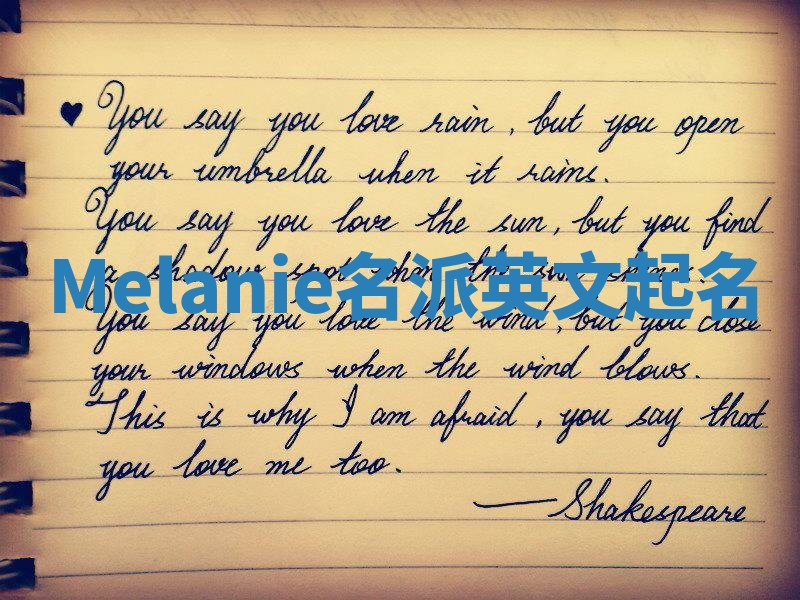 ♥ You say you love rain, but you open
your umbrella when it rains.
You say you love the sun, but you find
a shadow spot when the sun shines.
Melanie名派英文起名
You say you love the wind, but you close
your windows when the wind blows.
This is why I am afraid, you say that
you love me too.
— Shakespeare